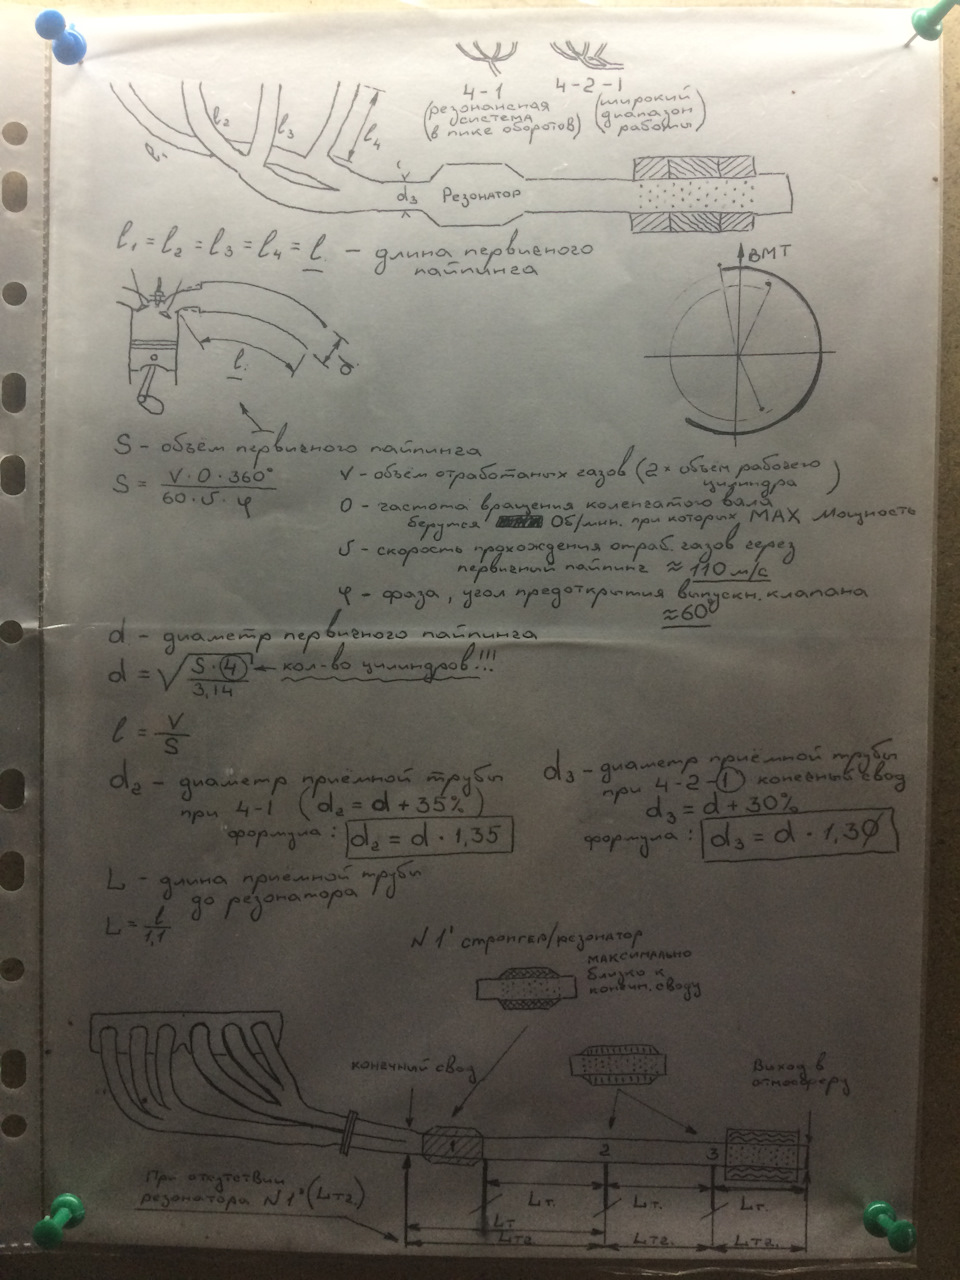 4-1
4-2-1
(резонансная система в пике оборотов)
(широкий диапазон работы)
l₁
l₂
l₃
l₄
d₃
Резонатор
l₁ = l₂ = l₃ = l₄ = l. – длина первичного
пайпинга
ВМТ
l.
d.
S – объём первичного пайпинга
S = V·O·360° / 60·υ·φ
V – объём отработаных газов (2× объём рабочего
цилиндра)
O – частота вращения коленчатого вала
берутся Об/мин. при которых MAX мощность
υ – скорость прохождения отраб. газов через
первичный пайпинг ≈ 110 м/с
φ – фаза, угол предоткрытия выпускн. клапана
≈60°
d – диаметр первичного пайпинга
d = √(S·4 / 3,14) ← кол-во цилиндров!!!
l = V / S
d₂ – диаметр приёмной трубы
при 4-1 (d₂ = d + 35%)
формула: d₂ = d · 1,35
d₃ – диаметр приёмной трубы
при 4-2-1 конечный свод
d₃ = d + 30%
формула: d₃ = d · 1,30
L – длина приемной трубы
до резонатора
L = l / 1,1
N 1' стронгер/резонатор
максимально
близко к
конечн. своду
конечный свод
Выход в
атмосферу
1
2
3
При отсутствии
резонатора N 1' (Lт2.)
Lт.
Lт.
Lт.
Lт
Lт2
Lт2.
Lт2.